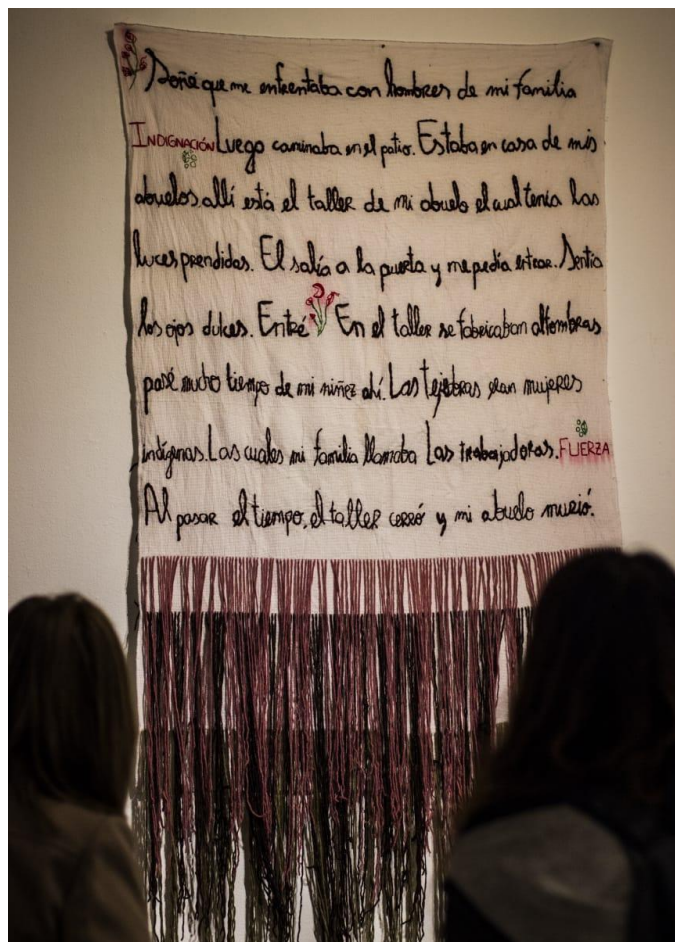 Soñé que me enfrentaba con hombres de mi familia
INDIGNACIÓN Luego caminaba en el patio. Estaba en casa de mis
abuelos allí está el taller de mi abuelo el cual tenía las
luces prendidas. El salía a la puerta y me pedía entrar. Sentía
los ojos dulces. Entré En el taller se fabricaban alfombras
pasé mucho tiempo de mi niñez ahí. Las tejedoras eran mujeres
indígenas. Las cuales mi familia llamaba Las trabajadoras. FUERZA
Al pasar el tiempo, el taller cerró y mi abuelo murió.